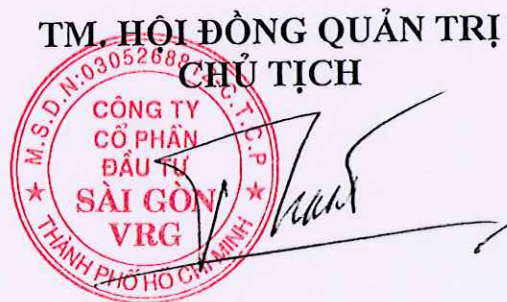 TM. HỘI ĐỒNG QUẢN TRỊ
CHỦ TỊCH
M.S.D.N:03052688
C.T.C.P
CÔNG TY
CỔ PHẦN
ĐẦU TƯ
SÀI GÒN
VRG
THÀNH PHỐ HỒ CHÍ MINH